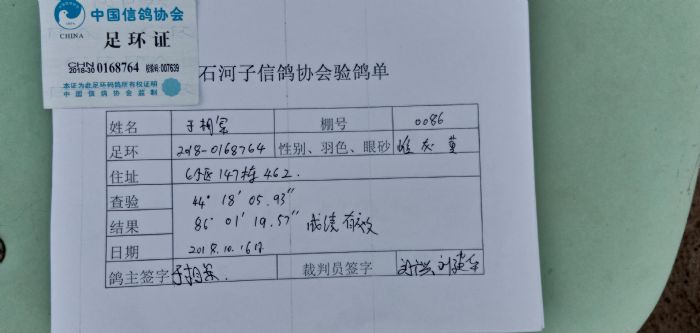 中国信鸽协会
CHINA
足环证
CHN
2018-30 0168764 校验码:007639
本证为此足环码鸽所有权证明
中国信鸽协会监制
石河子信鸽协会验鸽单
姓名 于相军 棚号 0086
足环 2018-0168764 性别、羽色、眼砂 雌 灰 黄
住址 6小区147栋462.
查验 44° 18′ 05.93″
结果 86° 01′ 19.57″ 成绩有效
日期 2018.10.16日
鸽主签字 裁判员签字